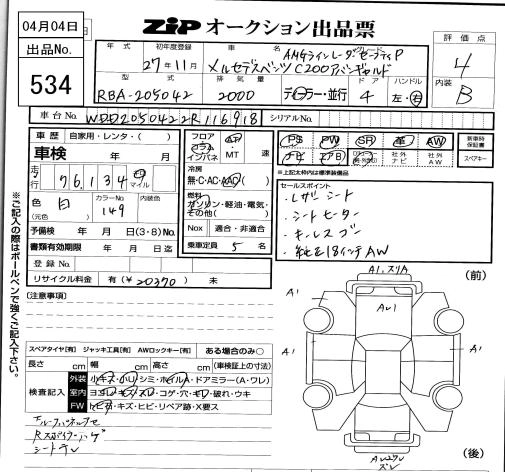 04月04日
ZIP オークション出品票
出品No.
534
年式 初年度登録 車名 グレード
27年11月 メルセデスベンツ C200アバンギャルド
AMGラインレーダーセーフティP
評価点
4
内装
B
型式 排気量 ドア ハンドル
RBA-205042 2000 ディーラー・並行 4 左・右
車台No. WDD2050422R116918 シリアルNo.
車歴 自家用・レンタ・( )
車検 年 月
走行 76,134 マイル
色 白 カラーNo 149 内装色
(元色)
予備検 年 月 日(3・8)No.
書類有効期限 年 月 日迄
登録No.
リサイクル料金 有(¥20370) 未
フロア コラム インパネ AT・MT 速
冷房 無・C・AC・AAC
燃料 ガソリン・軽油・電気・その他( )
Nox 適合・非適合
乗車定員 5 名
PS PW SR 革 AW
ナビ エアB 社外ナビ 社外AW
新車時保証書
スペアキー
※上記太枠内は標準装備品
セールスポイント
・レザーシート
・シートヒーター
・キーレスゴー
・純正18インチAW
※ご記入の際はボールペンで強くご記入下さい。
(注意事項)
スペアタイヤ[有] ジャッキ工具[有] AWロックキー[有] ある場合のみ○
長さ cm 幅 cm 高さ cm (車検証上の寸法)
検査記入 外装 小キズ・小U シミ・ホイルA・ドアミラー(A・ワレ)
室内 ヨゴレ・キズ・スレ・コゲ・穴・キレ・破れ・ウキ
FW トビ石・キズ・ヒビ・リペア跡・X要ス
シートスレ
(前)
A1.スリA
A1
AU1
A1
A1
A1
(後)